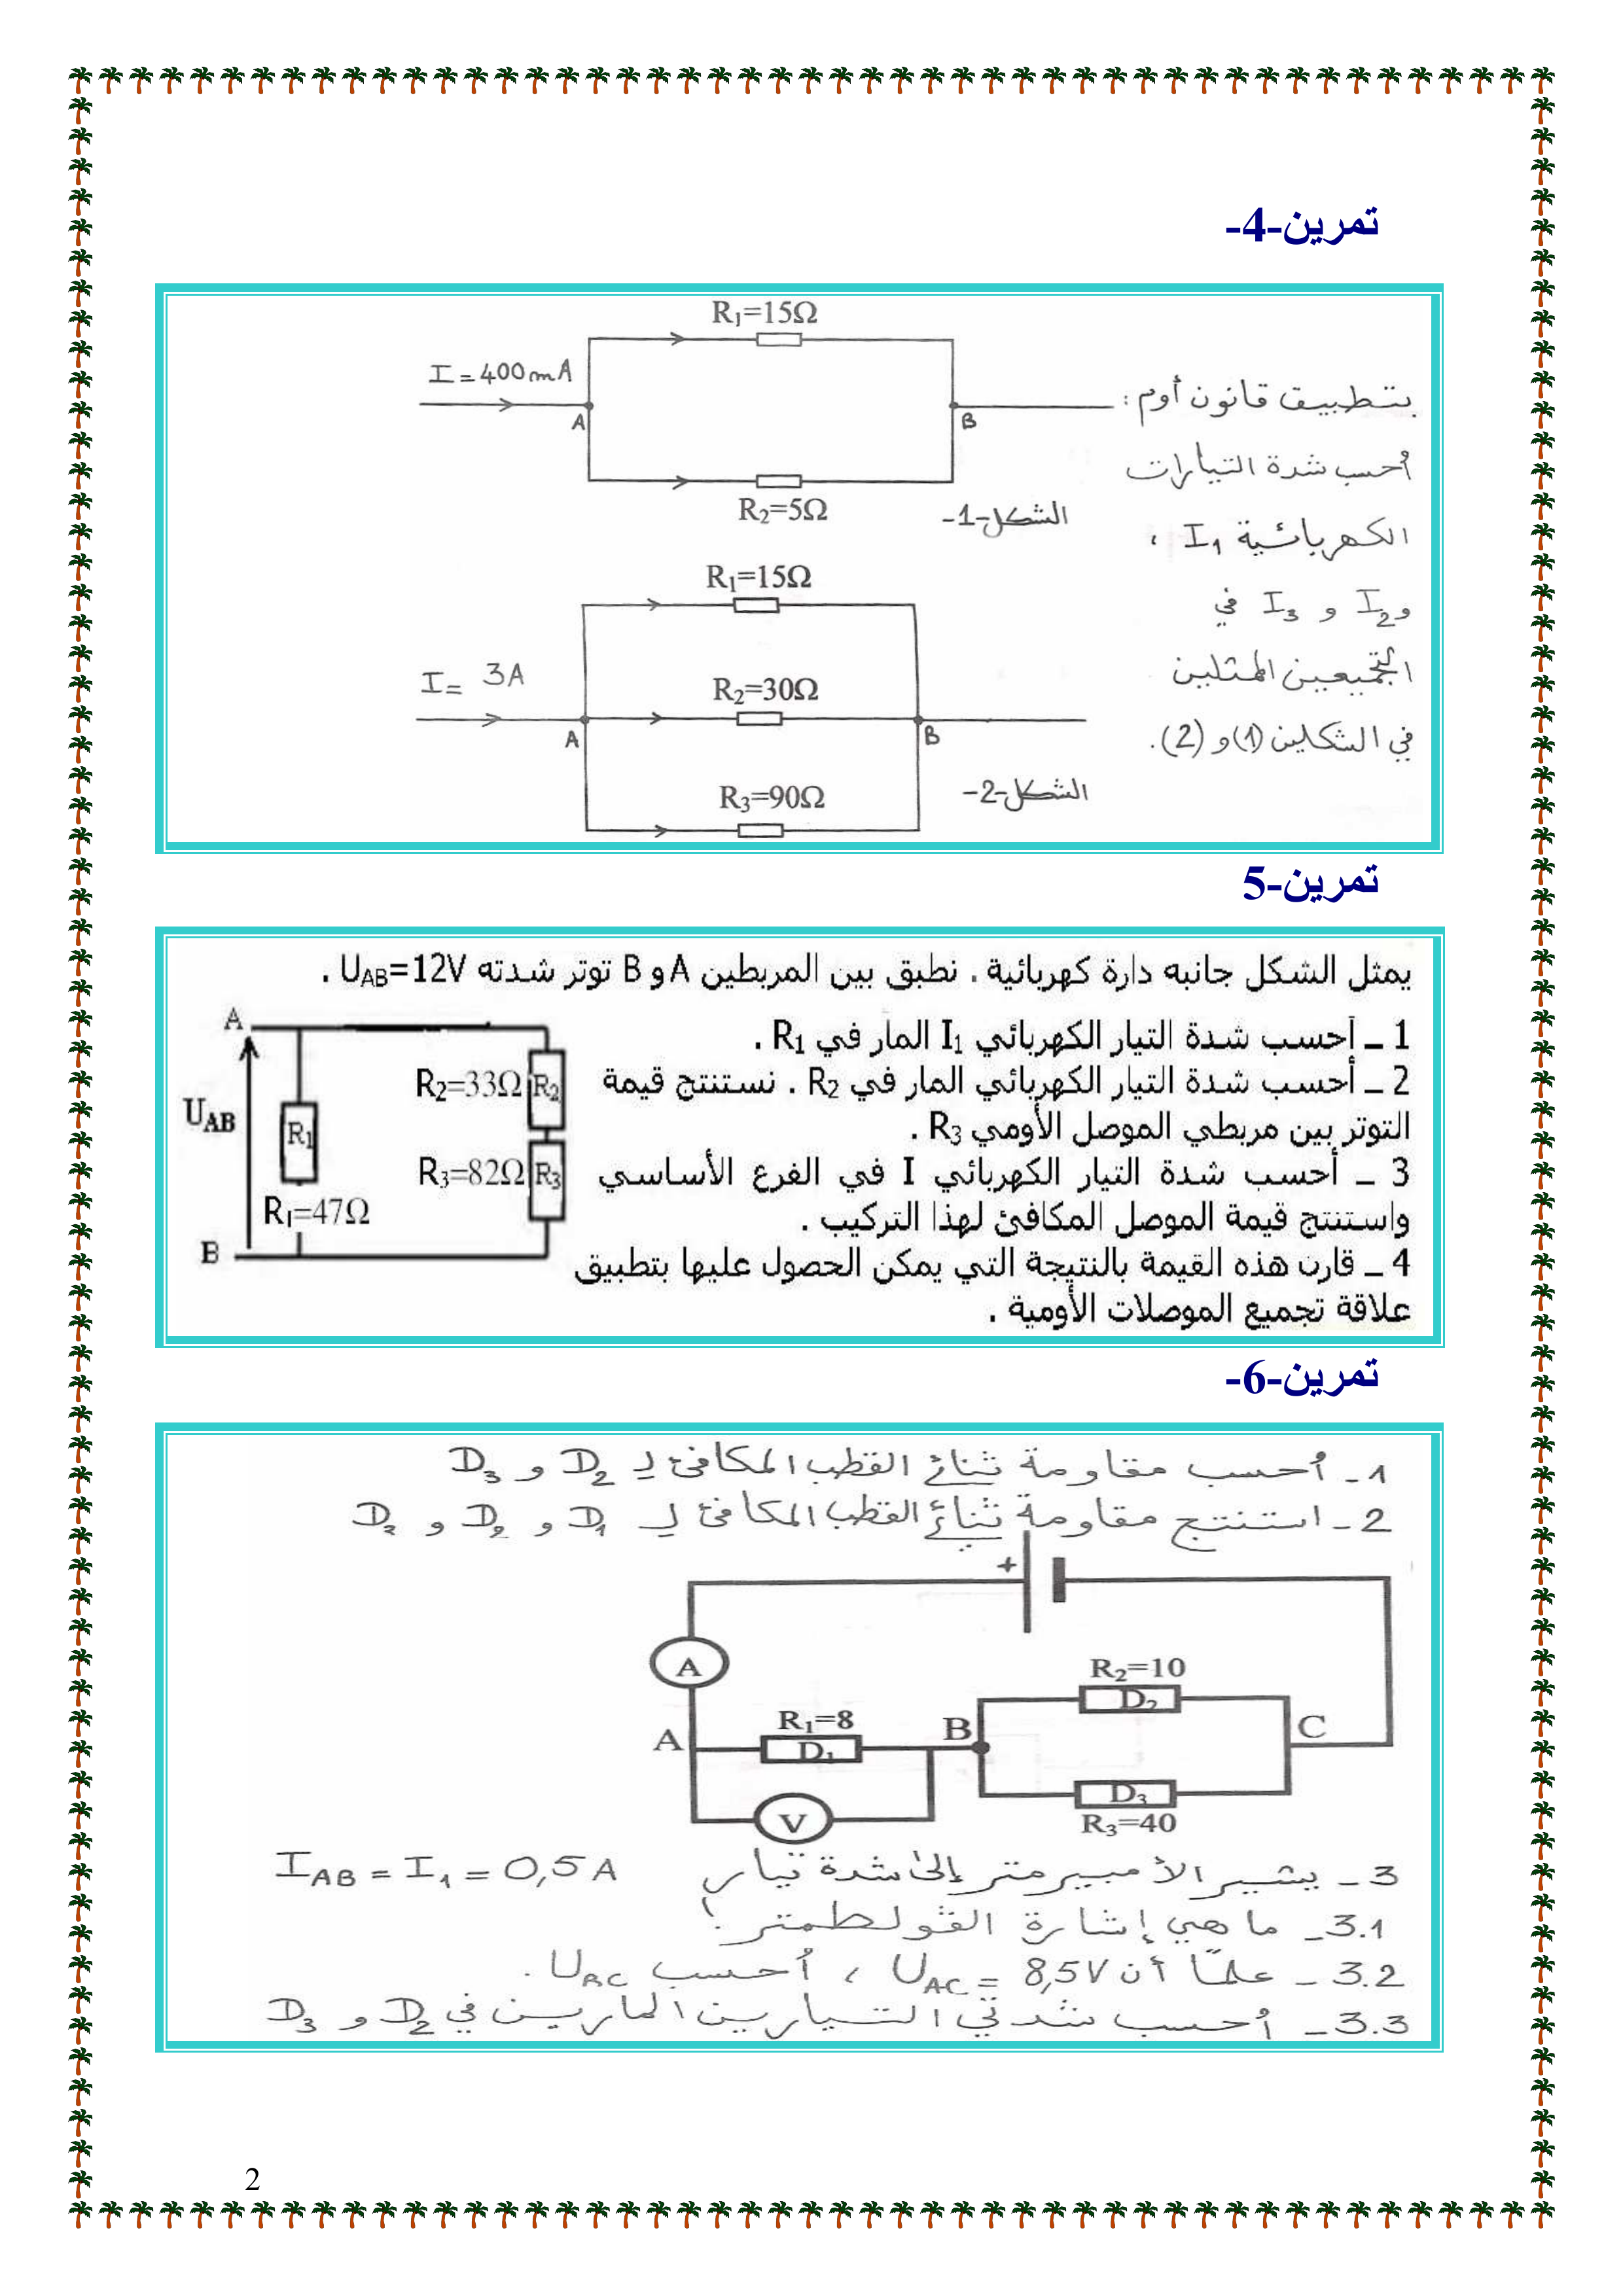 تمرين-4-
R1=15Ω
I=400mA
A
B
R2=5Ω
الشكل-1-
بتطبيق قانون أوم:
أحسب شدة التيارات
الكهربائية I1 ،
وI2 و I3 في
التجميعين الممثلين
في الشكلين (1) و (2).
R1=15Ω
I= 3A
R2=30Ω
A
B
R3=90Ω
الشكل-2-
تمرين-5
يمثل الشكل جانبه دارة كهربائية . نطبق بين المربطين A و B توتر شدته UAB=12V .
1 ـ أحسب شدة التيار الكهربائي I1 المار في R1 .
2 ـ أحسب شدة التيار الكهربائي المار في R2 . نستنتج قيمة
التوتر بين مربطي الموصل الأومي R3 .
3 ـ أحسب شدة التيار الكهربائي I في الفرع الأساسي
واستنتج قيمة الموصل المكافئ لهذا التركيب .
4 ـ قارن هذه القيمة بالنتيجة التي يمكن الحصول عليها بتطبيق
علاقة تجميع الموصلات الأومية .
A
R2=33Ω R2
UAB
R1
R3=82Ω R3
R1=47Ω
B
تمرين-6-
1 ـ أحسب مقاومة ثنائي القطب المكافئ لـ D2 و D3
2 ـ استنتج مقاومة ثنائي القطب المكافئ لـ D1 و D2 و D3
+
A
R2=10
D2
R1=8
A
D1
B
C
D3
V
R3=40
3 ـ يشير الأمبيرمتر إلى شدة تيار IAB = I1 = 0,5 A
3.1 ـ ما هي إشارة الفولطمتر؟
3.2 ـ علما أن UAC = 8,5V ، أحسب UBC .
3.3 ـ أحسب شدتي التيارين المارين في D2 و D3
2